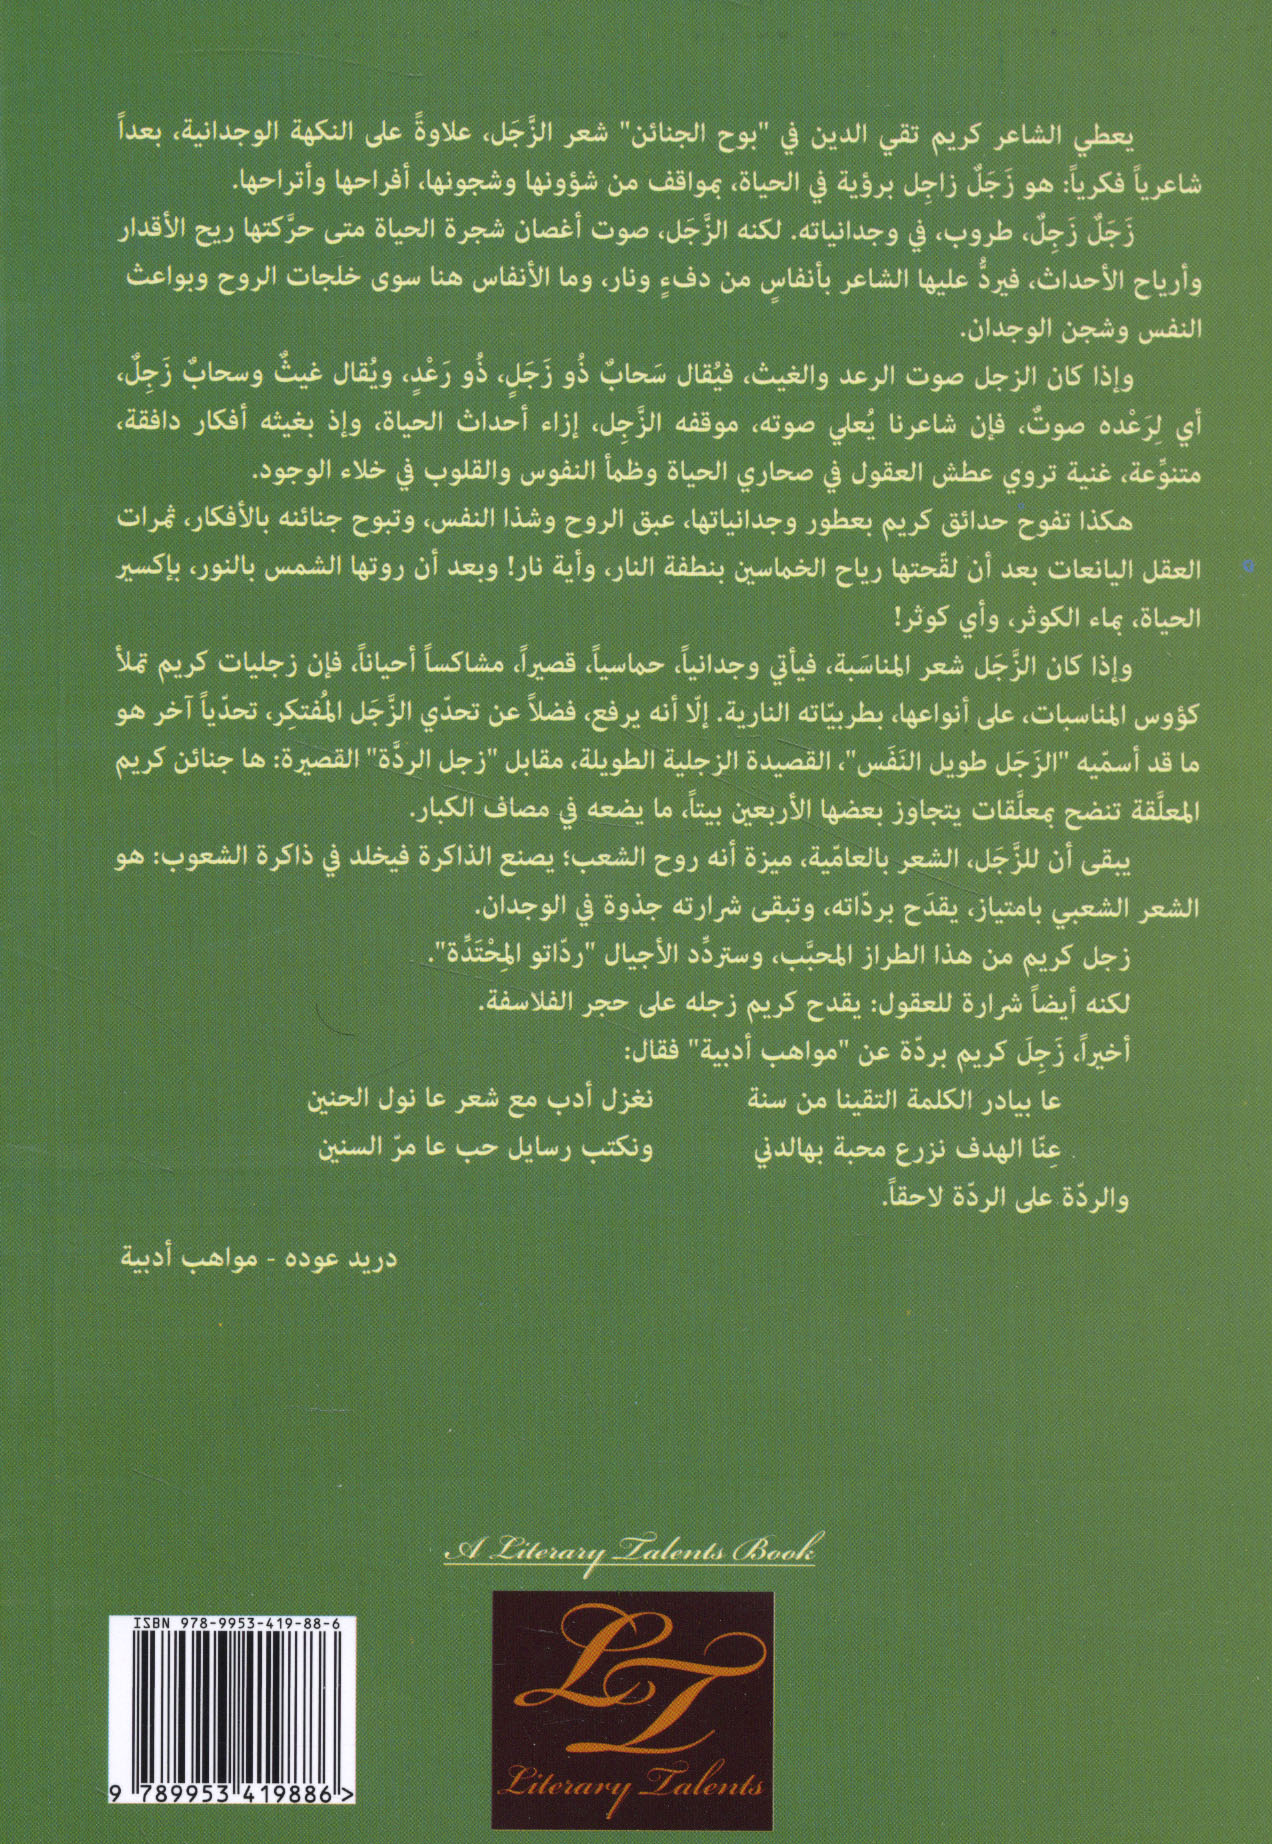 يعطي الشاعر كريم تقي الدين في "بوح الجنائن" شعر الزَّجَل، علاوةً على النكهة الوجدانية، بعداً
شاعرياً فكرياً: هو زَجَلٌ زاجِل برؤية في الحياة، بمواقف من شؤونها وشجونها، أفراحها وأتراحها.
زَجَلٌ زَجِلٌ، طروب، في وجدانياته. لكنه الزَّجَل، صوت أغصان شجرة الحياة متى حرَّكتها ريح الأقدار
وأرياح الأحداث، فيردُّ عليها الشاعر بأنفاسٍ من دفءٍ ونار، وما الأنفاس هنا سوى خلَجات الروح وبواعث
النفس وشجن الوجدان.
وإذا كان الزجل صوت الرعد والغيث، فيُقال سَحابٌ ذُو زَجَلٍ، ذُو رَعْدٍ، ويُقال غيثٌ وسحابٌ زَجِلٌ،
أي لِرَعْده صوتٌ، فإن شاعرنا يُعلي صوته، موقفه الزَّجِل، إزاء أحداث الحياة، وإذ بغيثه أفكار دافقة،
متنوِّعة، غنية تروي عطش العقول في صحاري الحياة وظمأ النفوس والقلوب في خلاء الوجود.
هكذا تفوح حدائق كريم بعطور وجدانياتها، عبق الروح وشذا النفس، وتبوح جنائنه بالأفكار، ثمرات
العقل اليانعات بعد أن لقّحتها رياح الخماسين بنطفة النار، وأية نار! وبعد أن روتها الشمس بالنور، بإكسير
الحياة، بماء الكوثر، وأي كوثر!
وإذا كان الزَّجَل شعر المناسَبة، فيأتي وجدانياً، حماسياً، قصيراً، مشاكساً أحياناً، فإن زجليات كريم تملأ
كؤوس المناسبات، على أنواعها، بطربيّاته النارية. إلّا أنه يرفع، فضلاً عن تحدّي الزَّجَل المُفتكِر، تحدّياً آخر هو
ما قد أسمّيه "الزَجَل طويل النَفَس"، القصيدة الزجلية الطويلة، مقابل "زجل الردَّة" القصيرة: ها جنائن كريم
المعلَّقة تنضح بمعلَّقات يتجاوز بعضها الأربعين بيتاً، ما يضعه في مصاف الكبار.
يبقى أن للزَّجَل، الشعر بالعامّية، ميزة أنه روح الشعب؛ يصنع الذاكرة فيخلد في ذاكرة الشعوب: هو
الشعر الشعبي بامتياز، يقدَح بردّاته، وتبقى شرارته جذوة في الوجدان.
زجل كريم من هذا الطراز المحبَّب، وستردِّد الأجيال "ردّاتو المِحْتَدِّة".
لكنه أيضاً شرارة للعقول: يقدح كريم زجله على حجر الفلاسفة.
أخيراً، زَجِلَ كريم بردّة عن "مواهب أدبية" فقال:
عا بيادر الكلمة التقينا من سنة نغزل أدب مع شعر عا نول الحنين
عِنّا الهدف نزرع محبة بهالدني ونكتب رسايل حب عا مرّ السنين
والردّة على الردّة لاحقاً.
دريد عوده - مواهب أدبية
A Literary Talents Book
LT
Literary Talents
ISBN 978-9953-419-88-6
9 789953 419886 >